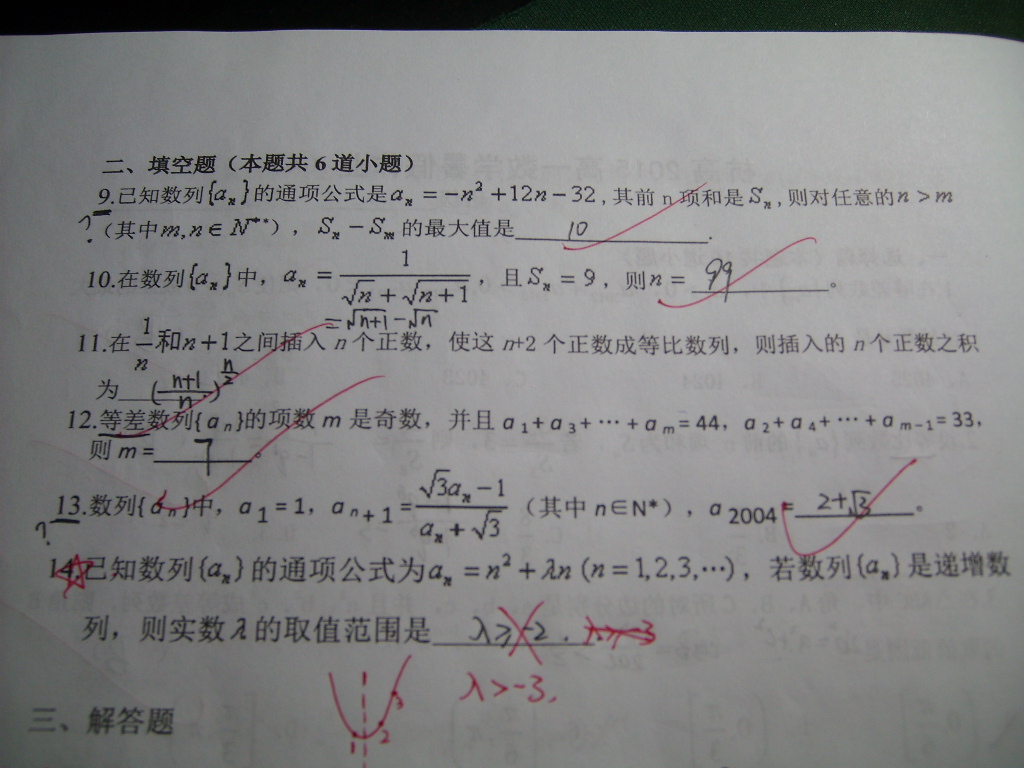 二、填空题（本题共 6 道小题）
9.已知数列{aₙ}的通项公式是aₙ = −n²+12n−32，其前 n 项和是Sₙ，则对任意的n > m
?（其中m,n∈N*），Sₙ − Sₘ 的最大值是 10 .
10.在数列{aₙ}中，aₙ = 1/(√n + √(n+1))，且Sₙ = 9，则n = 99 。
= √(n+1) − √n
11.在 1/n 和n+1之间插入 n 个正数，使这 n+2 个正数成等比数列，则插入的 n 个正数之积
为 ((n+1)/n)^(n/2)
12.等差数列{aₙ}的项数 m 是奇数，并且 a₁+a₃+…+aₘ=44，a₂+a₄+…+aₘ₋₁=33，
则 m= 7 。
13.数列{aₙ}中，a₁=1，aₙ₊₁=(√3aₙ−1)/(aₙ+√3)（其中 n∈N*），a₂₀₀₄= 2+√3 。
?
14.已知数列{aₙ}的通项公式为aₙ = n²+λn (n=1,2,3,…)，若数列{aₙ}是递增数
列，则实数λ的取值范围是 λ≥−2 .
λ>−3.
1 2 3
三、解答题